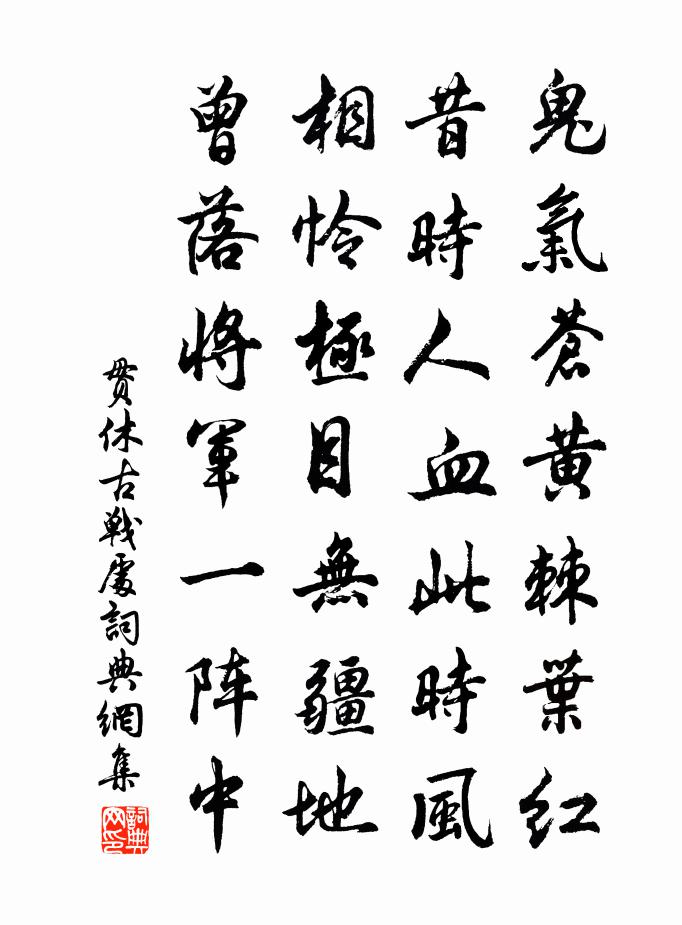 鬼氣蒼黃棘葉紅
昔時人血此時風
相怜極目無疆地
曾落將軍一阵中
貫休古戰處詞典網集
詞典网印